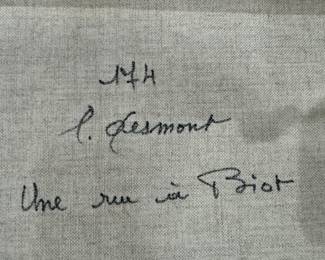 174
l. Desmont
Une rue à Biot